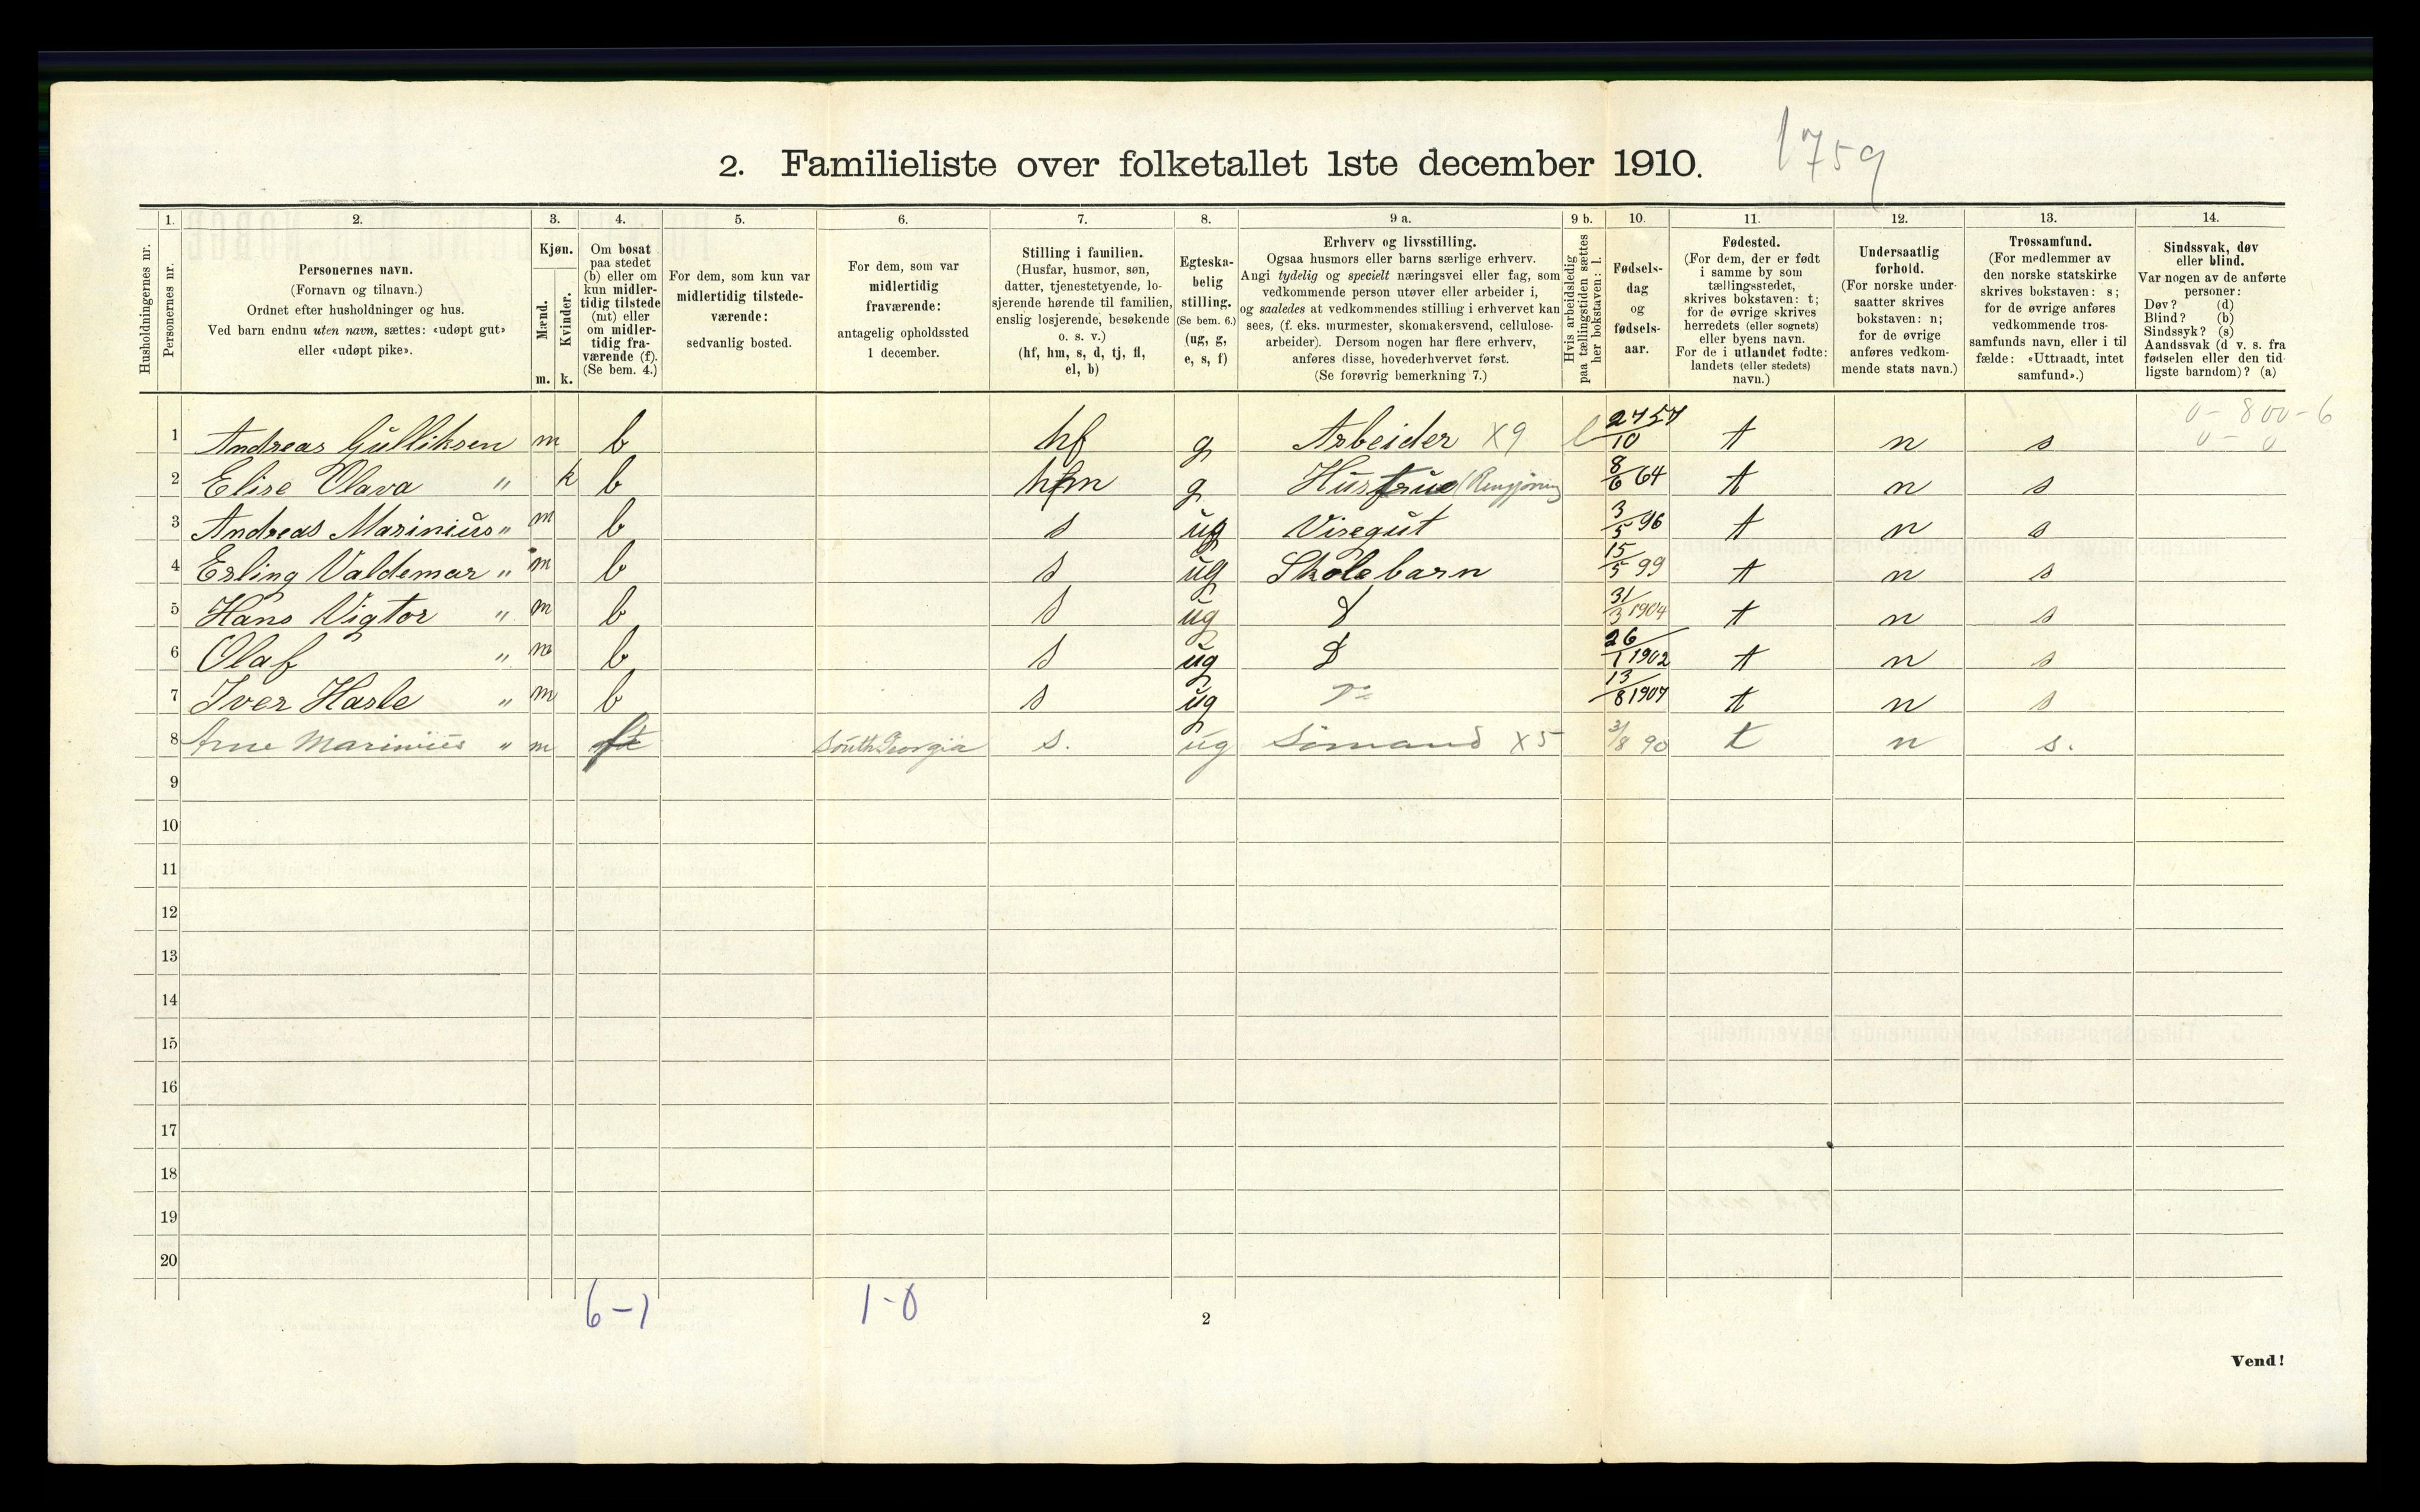 1759
2. Familieliste over folketallet 1ste december 1910.
Husholdningernes nr.
1.
Personernes nr.
2.
Personernes navn.
(Fornavn og tilnavn.)
Ordnet efter husholdninger og hus.
Ved barn endnu uten navn, sættes: «udøpt gut»
eller «udøpt pike».
3.
Kjøn.
Mænd.
Kvinder.
m. k.
4.
Om bosat
paa stedet
(b) eller om
kun midler-
tidig tilstede
(mt) eller
om midler-
tidig fra-
værende (f).
(Se bem. 4.)
5.
For dem, som kun var
midlertidig tilstede-
værende:
sedvanlig bosted.
6.
For dem, som var
midlertidig
fraværende:
antagelig opholdssted
1 december.
7.
Stilling i familien.
(Husfar, husmor, søn,
datter, tjenestetyende, lo-
sjerende hørende til familien,
enslig losjerende, besøkende
o. s. v.)
(hf, hm, s, d, tj, fl,
el, b)
8.
Egteska-
belig
stilling.
(Se bem. 6.)
(ug, g,
e, s, f)
9 a.
Erhverv og livsstilling.
Ogsaa husmors eller barns særlige erhverv.
Angi tydelig og specielt næringsvei eller fag, som
vedkommende person utøver eller arbeider i,
og saaledes at vedkommendes stilling i erhvervet kan
sees, (f. eks. murmester, skomakersvend, cellulose-
arbeider). Dersom nogen har flere erhverv,
anføres disse, hovederhvervet først.
(Se forøvrig bemerkning 7.)
9 b.
Hvis arbeidsledig
paa tællingstiden sættes
her bokstaven: l.
10.
Fødsels-
dag
og
fødsels-
aar.
11.
Fødested.
(For dem, der er født
i samme by som
tællingsstedet,
skrives bokstaven: t;
for de øvrige skrives
herredets (eller sognets)
eller byens navn.
For de i utlandet fødte:
landets (eller stedets)
navn.)
12.
Undersaatlig
forhold.
(For norske under-
saatter skrives
bokstaven: n;
for de øvrige
anføres vedkom-
mende stats navn.)
13.
Trossamfund.
(For medlemmer av
den norske statskirke
skrives bokstaven: s;
for de øvrige anføres
vedkommende tros-
samfunds navn, eller i til
fælde: «Uttraadt, intet
samfund».)
14.
Sindssvak, døv
eller blind.
Var nogen av de anførte
personer:
Døv? (d)
Blind? (b)
Sindssyk? (s)
Aandssvak (d v. s. fra
fødselen eller den tid-
ligste barndom)? (a)
0 - 800 - 6
0 - 0
1 Andreas Gulliksen m b hf g Arbeider X9 l 27/10 57 t n s
2 Elise Olava " k b hm g Hustrue (Rengjøring 8/6 64 t n s
3 Andreas Marinius " m b s ug Visegut 3/5 96 t n s
4 Erling Valdemar " m b s ug Skolebarn 15/5 99 t n s
5 Hans Vigtor " m b s ug 31/3 1904 t n s
6 Olaf " m b s ug 26/1 1902 t n s
7 Iver Hasle " m b s ug 13/8 1907 t n s
8 Arne Marinius " m f South Georgia s. ug Sømand X5 3/8 90 t n s.
9
10
11
12
13
14
15
16
17
18
19
20
6-1 1-0
2
Vend!